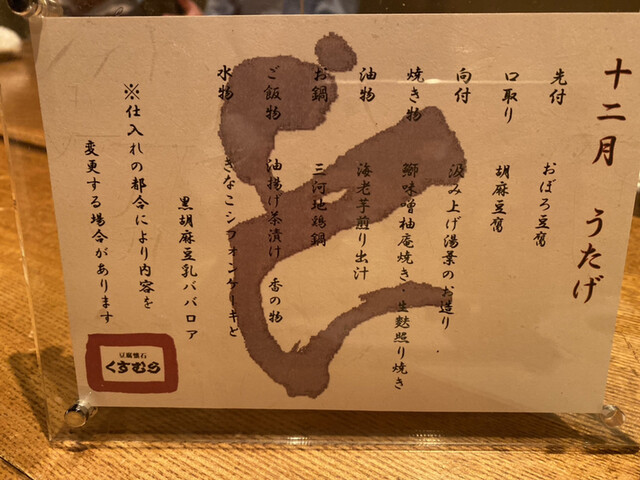 十二月 うたげ
先付 おぼろ豆腐
口取り 胡麻豆腐
向付 汲み上げ湯葉のお造り
焼き物 鰤味噌柚庵焼き・生麩照り焼き
油物 海老芋煎り出汁
お鍋 三河地鶏鍋
ご飯物 油揚げ茶漬け 香の物
水物 きなこシフォンケーキと
黒胡麻豆乳ババロア
※仕入れの都合により内容を
変更する場合があります
豆腐懐石
くすむら